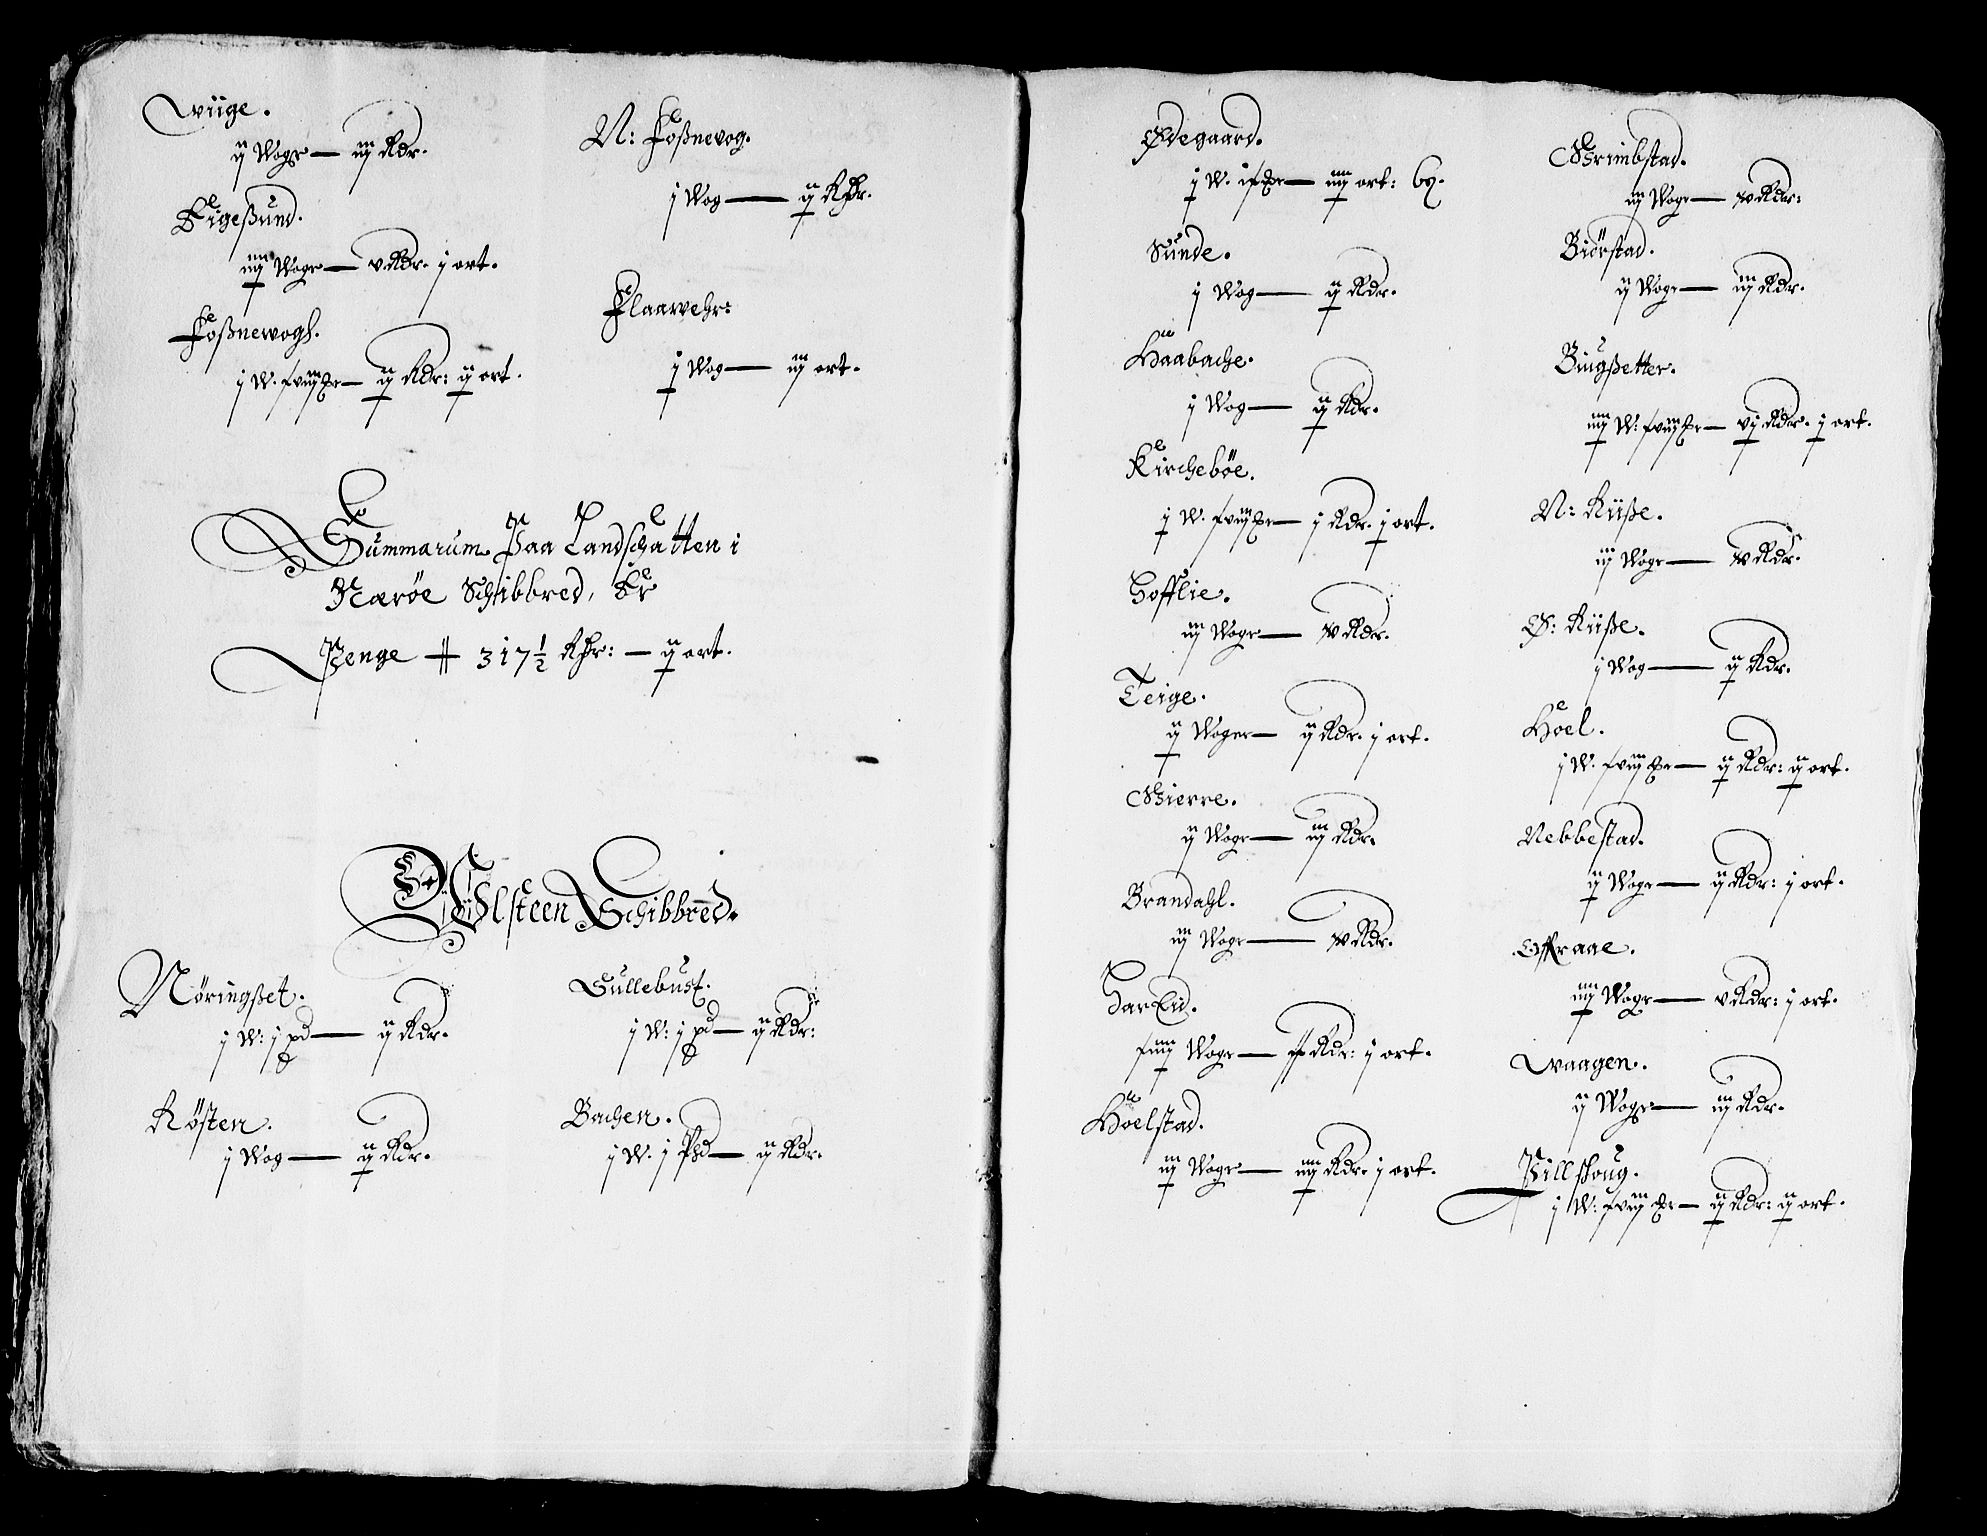 Wiige.
ij Woger — iij Rdr.
Eigeßund.
iiij Woger — v Rdr. j ort.
Foßnewogh.
j W. xviij — ij Rdr: ij ort.
N: Foßnewog.
j Wog — ij Rdr.
Flaawehr:
j Wog — iij ort.
Summarum Paa Landschatten i
Nærøe Schibbred, Er
Penge # 317½ Rdr: — ij ort.
Ulsteen Schibbred.
Nöringßet.
j W: j pd — ij Rdr.
Rösten.
j Wog — ij Rdr.
Sullebust.
j W: j pd — ij Rdr:
Bachen.
j W. j Pd — ij Rdr.
Ødegaard.
j W. — iiij ort: 6
Sunde.
j Wog — ij Rdr.
Haabache.
j Wog — ij Rdr.
Kirchebøe.
j W. xviij — j Rdr. j ort.
Hofflie.
iij Woger — Rdr.
Teige.
ij Woger — ij Rdr. j ort.
Gierre.
ij Woger — iij Rdr.
Brandahl.
iij Woger — Rdr.
HarEid.
xiiij Woger — Rdr: j ort.
Hoelstad.
iij Woger — iiij Rdr. j ort.
Grimbstad.
iij Woger — Rdr:
Biörstad.
ij Woger — iij Rdr.
Biugßetter.
iiij W: xviij — vj Rdr. j ort.
N: Riiße.
iij Woger — Rdr.
Ø: Riiße.
j Wog — ij Rdr.
Hoel.
j W. xviij — ij Rdr: ij ort.
Nebbestad.
ij Woger — ij Rdr: j ort.
Offraae.
iiij Woger — v Rdr: j ort.
Waagen.
ij Woger — iij Rdr.
Pillshoug.
j W: xviij — ij Rdr: ij ort.